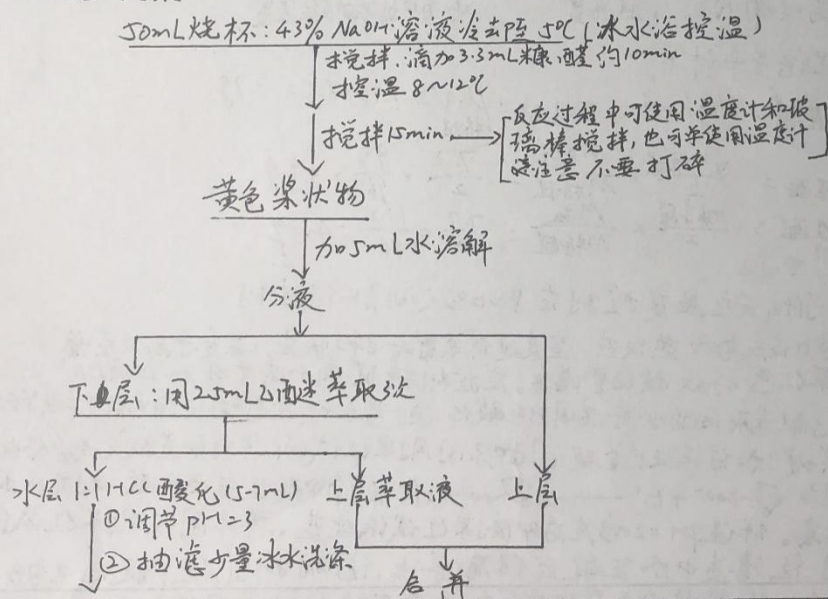 50mL烧杯:43% NaOH溶液冷去阝至5℃(冰水浴控温)
搅拌.滴加3.3mL糠醛约10min
控温8~12℃
搅拌15min
反应过程中可使用温度计和玻
璃棒搅拌,也可单使用温度计
注意不要打碎
黄色浆状物
加5mL水溶解
分液
下层:用25mL乙醚萃取3次
水层1:1HCl酸化(5-7mL)
上层萃取液
上层
①调节PH=3
②抽滤少量冰水洗涤
合并